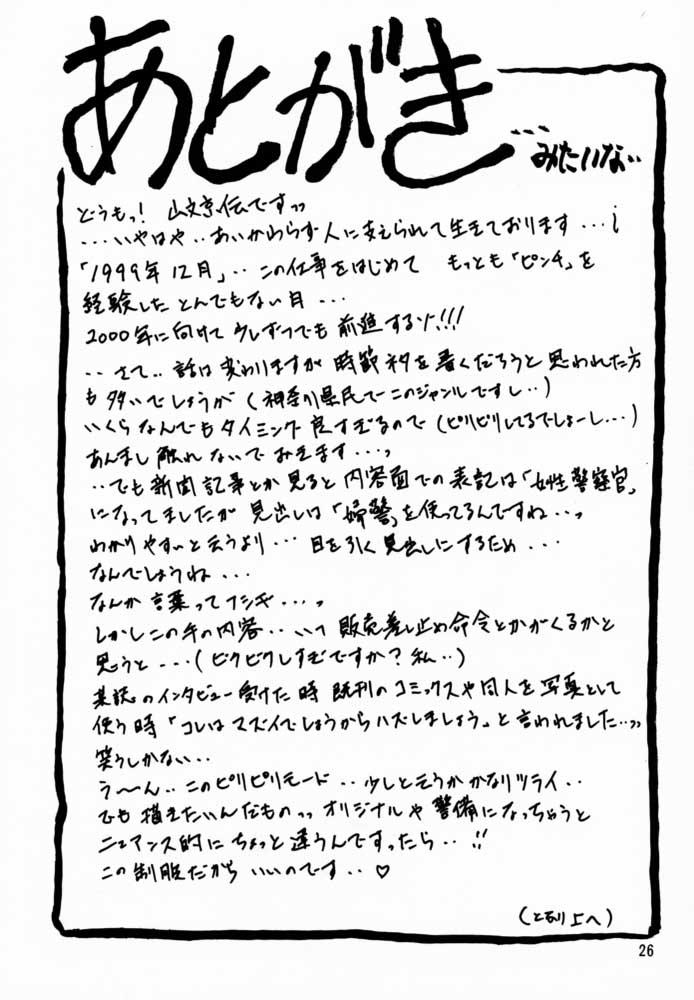 あとがき
…みたいな…
どうもっ! 山文京伝ですっっ
…いやはや‥あいかわらず人に支えられて生きております…
「1999年12月」‥この仕事をはじめて もっとも「ピンチ」を
経験したとんでもない月…
2000年に向けて少しずつでも前進するゾ!!!
‥さて‥話は変わりますが時節ネタを書くだろうと思われた方
も多いでしょうが(神奈川県民でこのジャンルですし‥)
いくらなんでもタイミング良すぎるので(ピリピリしてるでしょーし…)
あんまし触れないでおきます…っ
‥でも新聞記事とか見ると内容面での表記は「女性警察官」
になってましたが見出しは「婦警」を使ってるんですね‥っ
わかりやすいと云うより…目を引く見出しにするため…
なんでしょうね…
なんか言葉ってフシギ…っ
しかしこの手の内容‥いつ販売差し止め命令とかがくるかと
思うと…(ビクビクしすぎですか?私‥)
某誌のインタビュー受けた時既刊のコミックスや同人を写真として
使う時「コレはマズイでしょうからハズしましょう」と言われました‥っっ
笑うしかない‥
う〜ん‥このピリピリモード‥少しと云うかかなりツライ‥
でも描きたいんだものっっオリジナルや警備になっちゃうと
ニュアンス的にちょっと違うんですったら‥!!
この制服だから いいのです‥♡
(となり上へ)
26